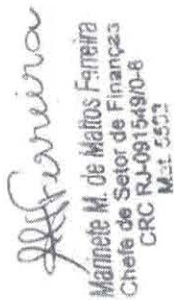 Marinete M. de Mattos Ferreira
Chefe de Setor de Finanças
CRC RJ-091549/0-8
Mat 5502